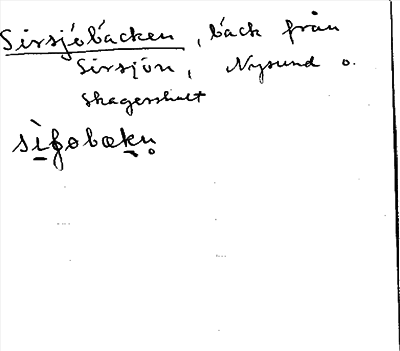 Sirsjöbäcken, bäck från
Sirsjön, Nysund o.
Skagershult